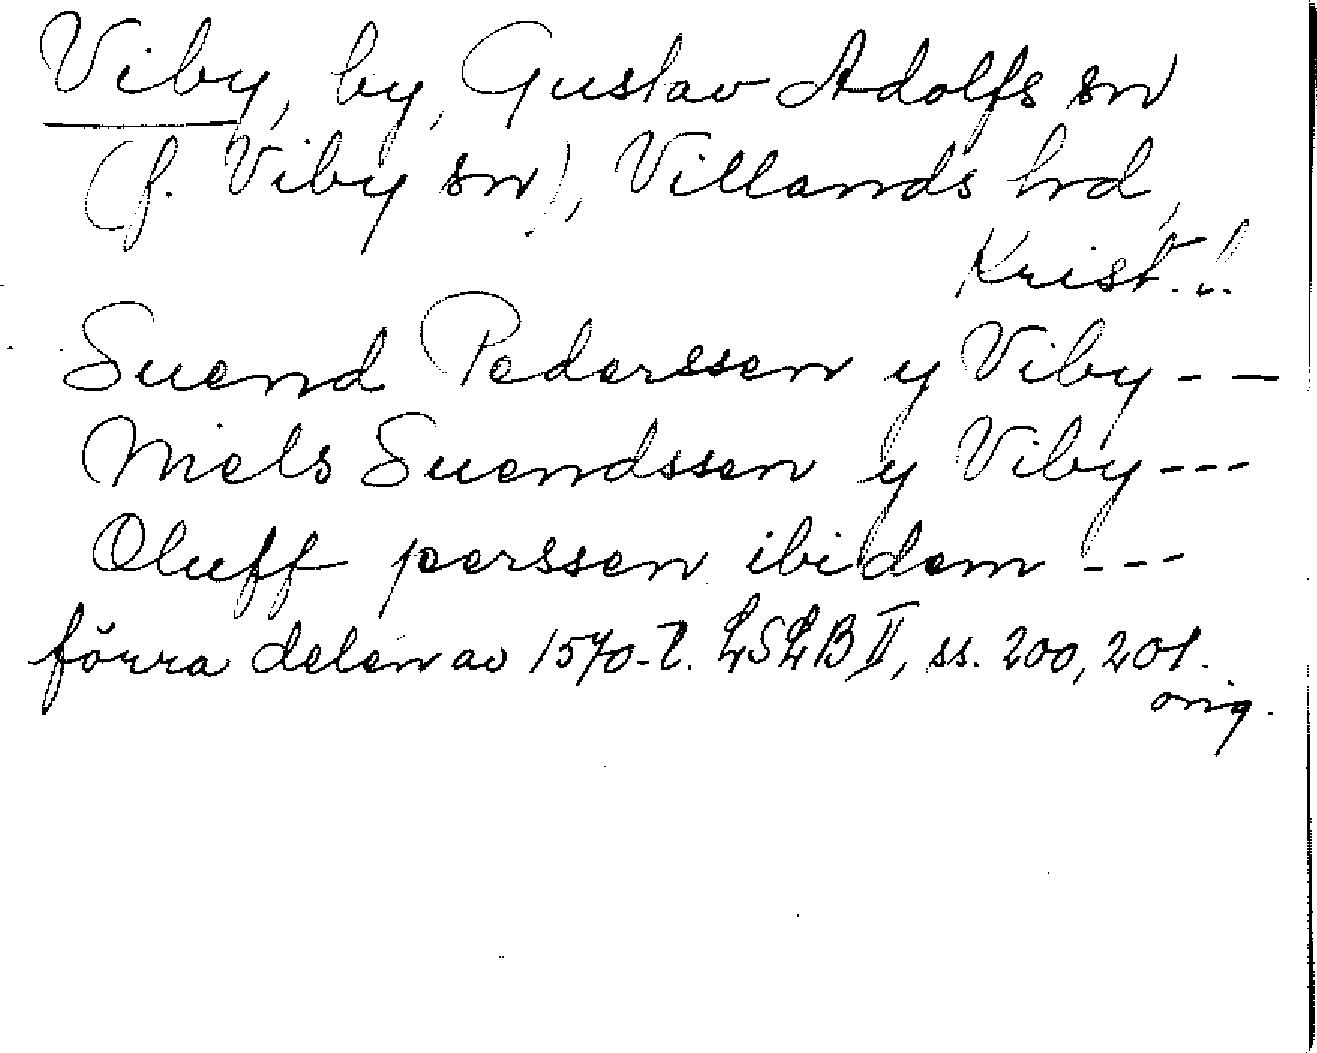 Viby, by, Gustav Adolfs sn
(f. Viby sn), Villands hd,
Krist. l.
Suend Pederssen y Viby - -
Niels Suendssen y Viby - - -
Oluff perssen ibidem - - -
förra delen av 1570-t. LSLB II, ss. 200, 201.
orig.